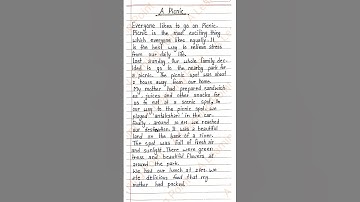 A Picnic
Everyone likes to go on Picnic.
Picnic is the most exciting thing
which everyone likes equally. It
is the best way to relieve stress
from our daily life.
Last Sunday, Our whole family deci-
ded to go to the nearby park for
a picnic. The picnic spot was about
2 hours away from our home.
My mother had prepared sandwich
es, juices and other snacks for
us to eat at a scenic spot. On
our way to the picnic spot, we
played "antakshari" in the car.
Finally, around 10 am we reached
our destination. It was a beautiful
land on the bank of a river.
The spot was full of fresh air
and sunlight. There were green
trees and beautiful flowers at
around the park.
We had our lunch at We
ate delicious food that my
mother had packed.